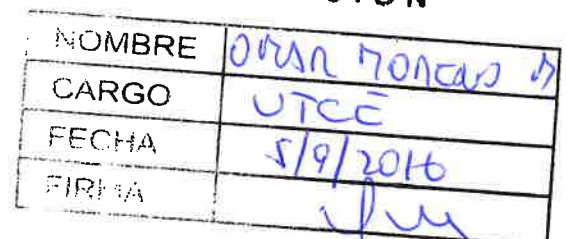 NOMBRE OMAR
CARGO UTCE
FECHA 5/9/2016
FIRMA